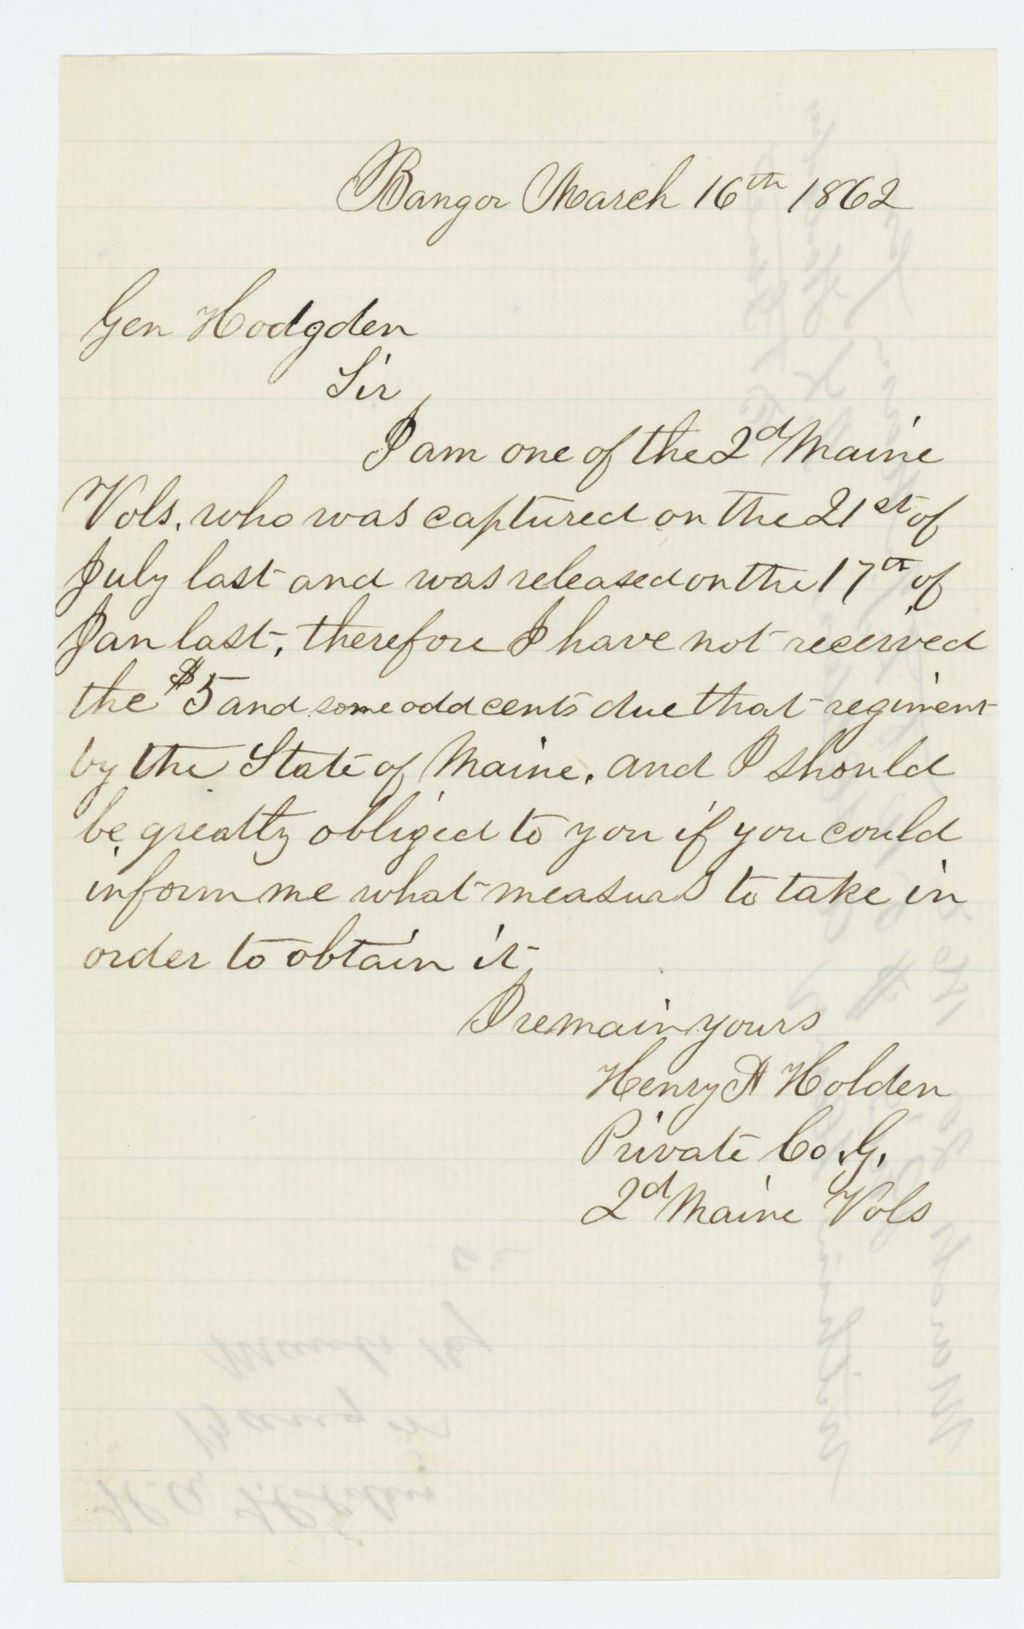 Bangor March 16th 1862
Gen Hodgden
Sir,
I am one of the 2d Maine
Vols. who was captured on the 21st of
July last and was released on the 17th of
Jan last, therefore I have not received
the $5 and some odd cents due that regiment
by the State of Maine. and I should
be greatly obliged to you if you could
inform me what measurs to take in
order to obtain it.
I remain yours
Henry A Holden
Private Co. G.
2d Maine Vols